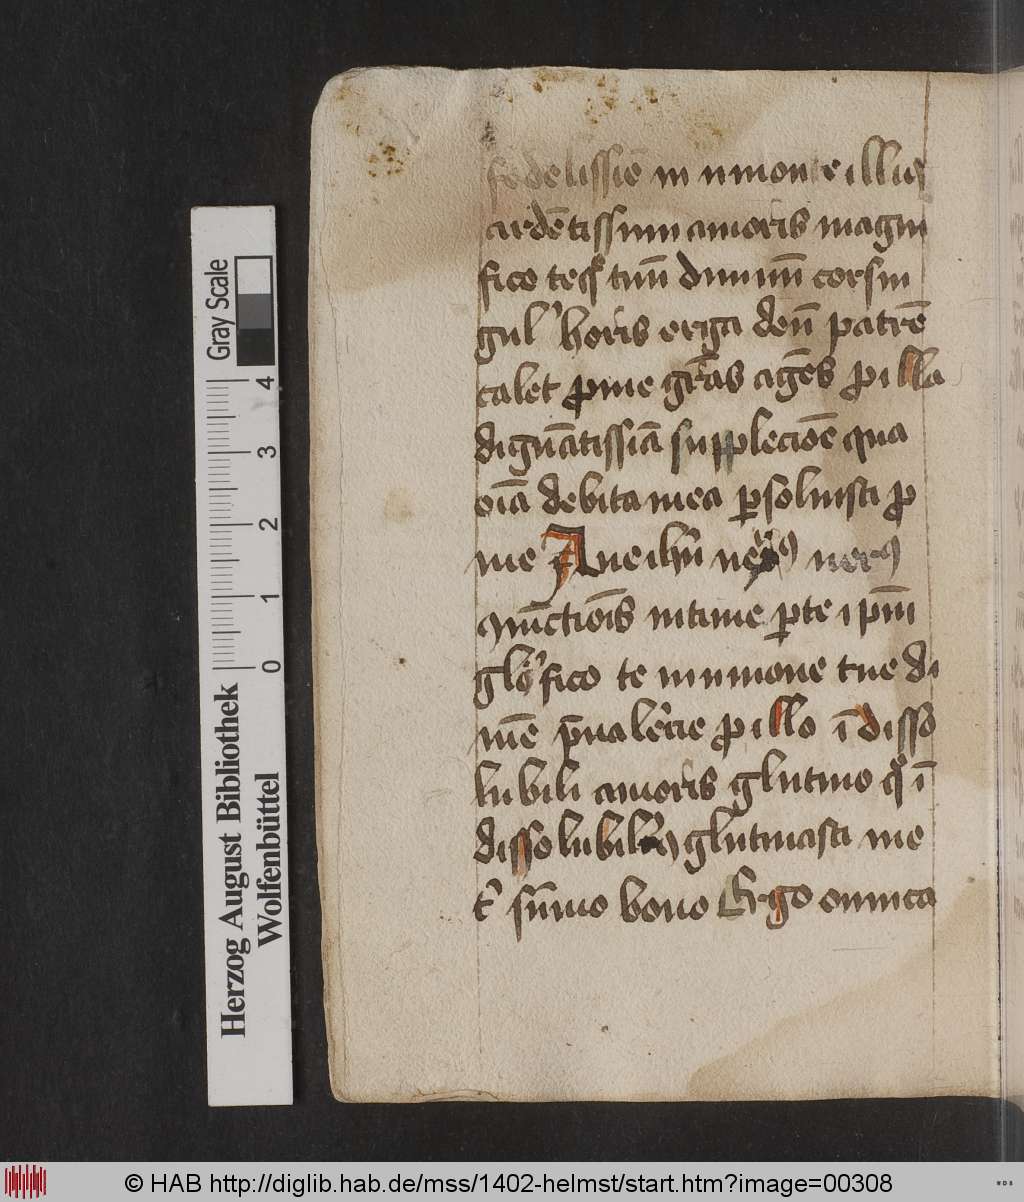 fidelissie in vnione illius
ardētissimi amoris magni
fico te tuū diuinū cor sin
gul' horis erga deū patrē
calet pro me grās agēs pro illa
dignātissiā supplecioē qua
oīa debita mea persoluisti pro
me Aue ihu
 intime
glo'fico te in vnione tue di
 pro illo īdisso
lubili amoris glutino ī
dissolubil' glutinasti me
sūmo bono Ergo omnia
Gray Scale
4
3
2
1
0
Herzog August Bibliothek
Wolfenbüttel
© HAB http://diglib.hab.de/mss/1402-helmst/start.htm?image=00308